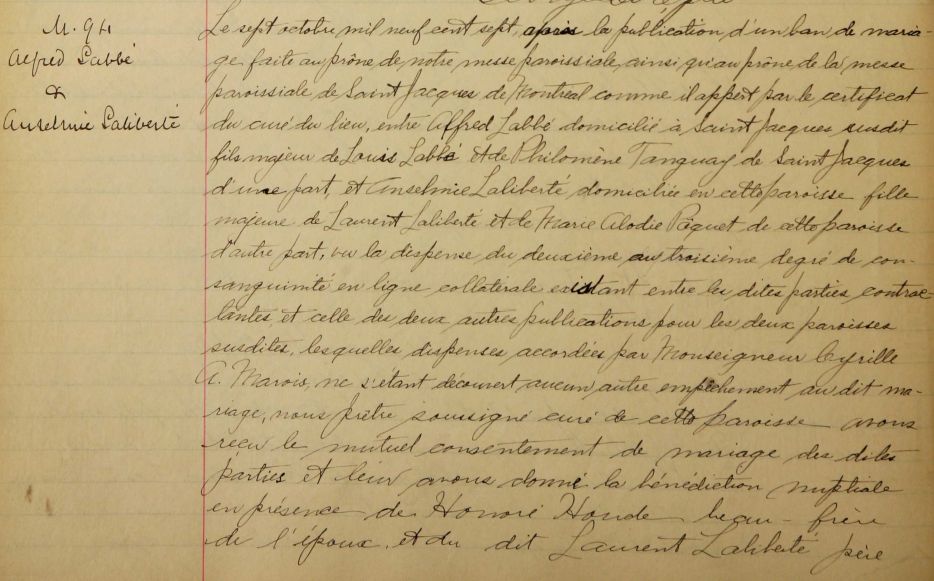 M. 94
Alfred Labbé
&
Anselmie Laliberté
Le sept octobre mil neuf cent sept, après la publication d'un ban de maria-
ge faite au prône de notre messe paroissiale, ainsi qu'au prône de la messe
paroissiale de Saint Jacques de Montréal comme il appert par le certificat
du curé du lieu, entre Alfred Labbé domicilié à Saint Jacques susdit
fils majeur de Louis Labbé et de Philomène Tanguay de Saint Jacques
d'une part, et Anselmie Laliberté domiciliée en cette paroisse fille
majeure de Laurent Laliberté et de Marie Elodie Pâquet de cette paroisse
d'autre part, vu la dispense du deuxième au troisième degré de con-
sanguinité en ligne collatérale existant entre les dites parties contrac-
tantes, et celle des deux autres publications pour les deux paroisses
susdites, lesquelles dispenses accordées par Monseigneur Cyrille
A. Marois, ne s'étant découvert aucun autre empêchement au dit ma-
riage, nous prêtre soussigné curé de cette paroisse avons
reçu le mutuel consentement de mariage des dites
parties et leur avons donné la bénédiction nuptiale
en présence de Honoré Houde beau-frère
de l'époux, et du dit Laurent Laliberté père